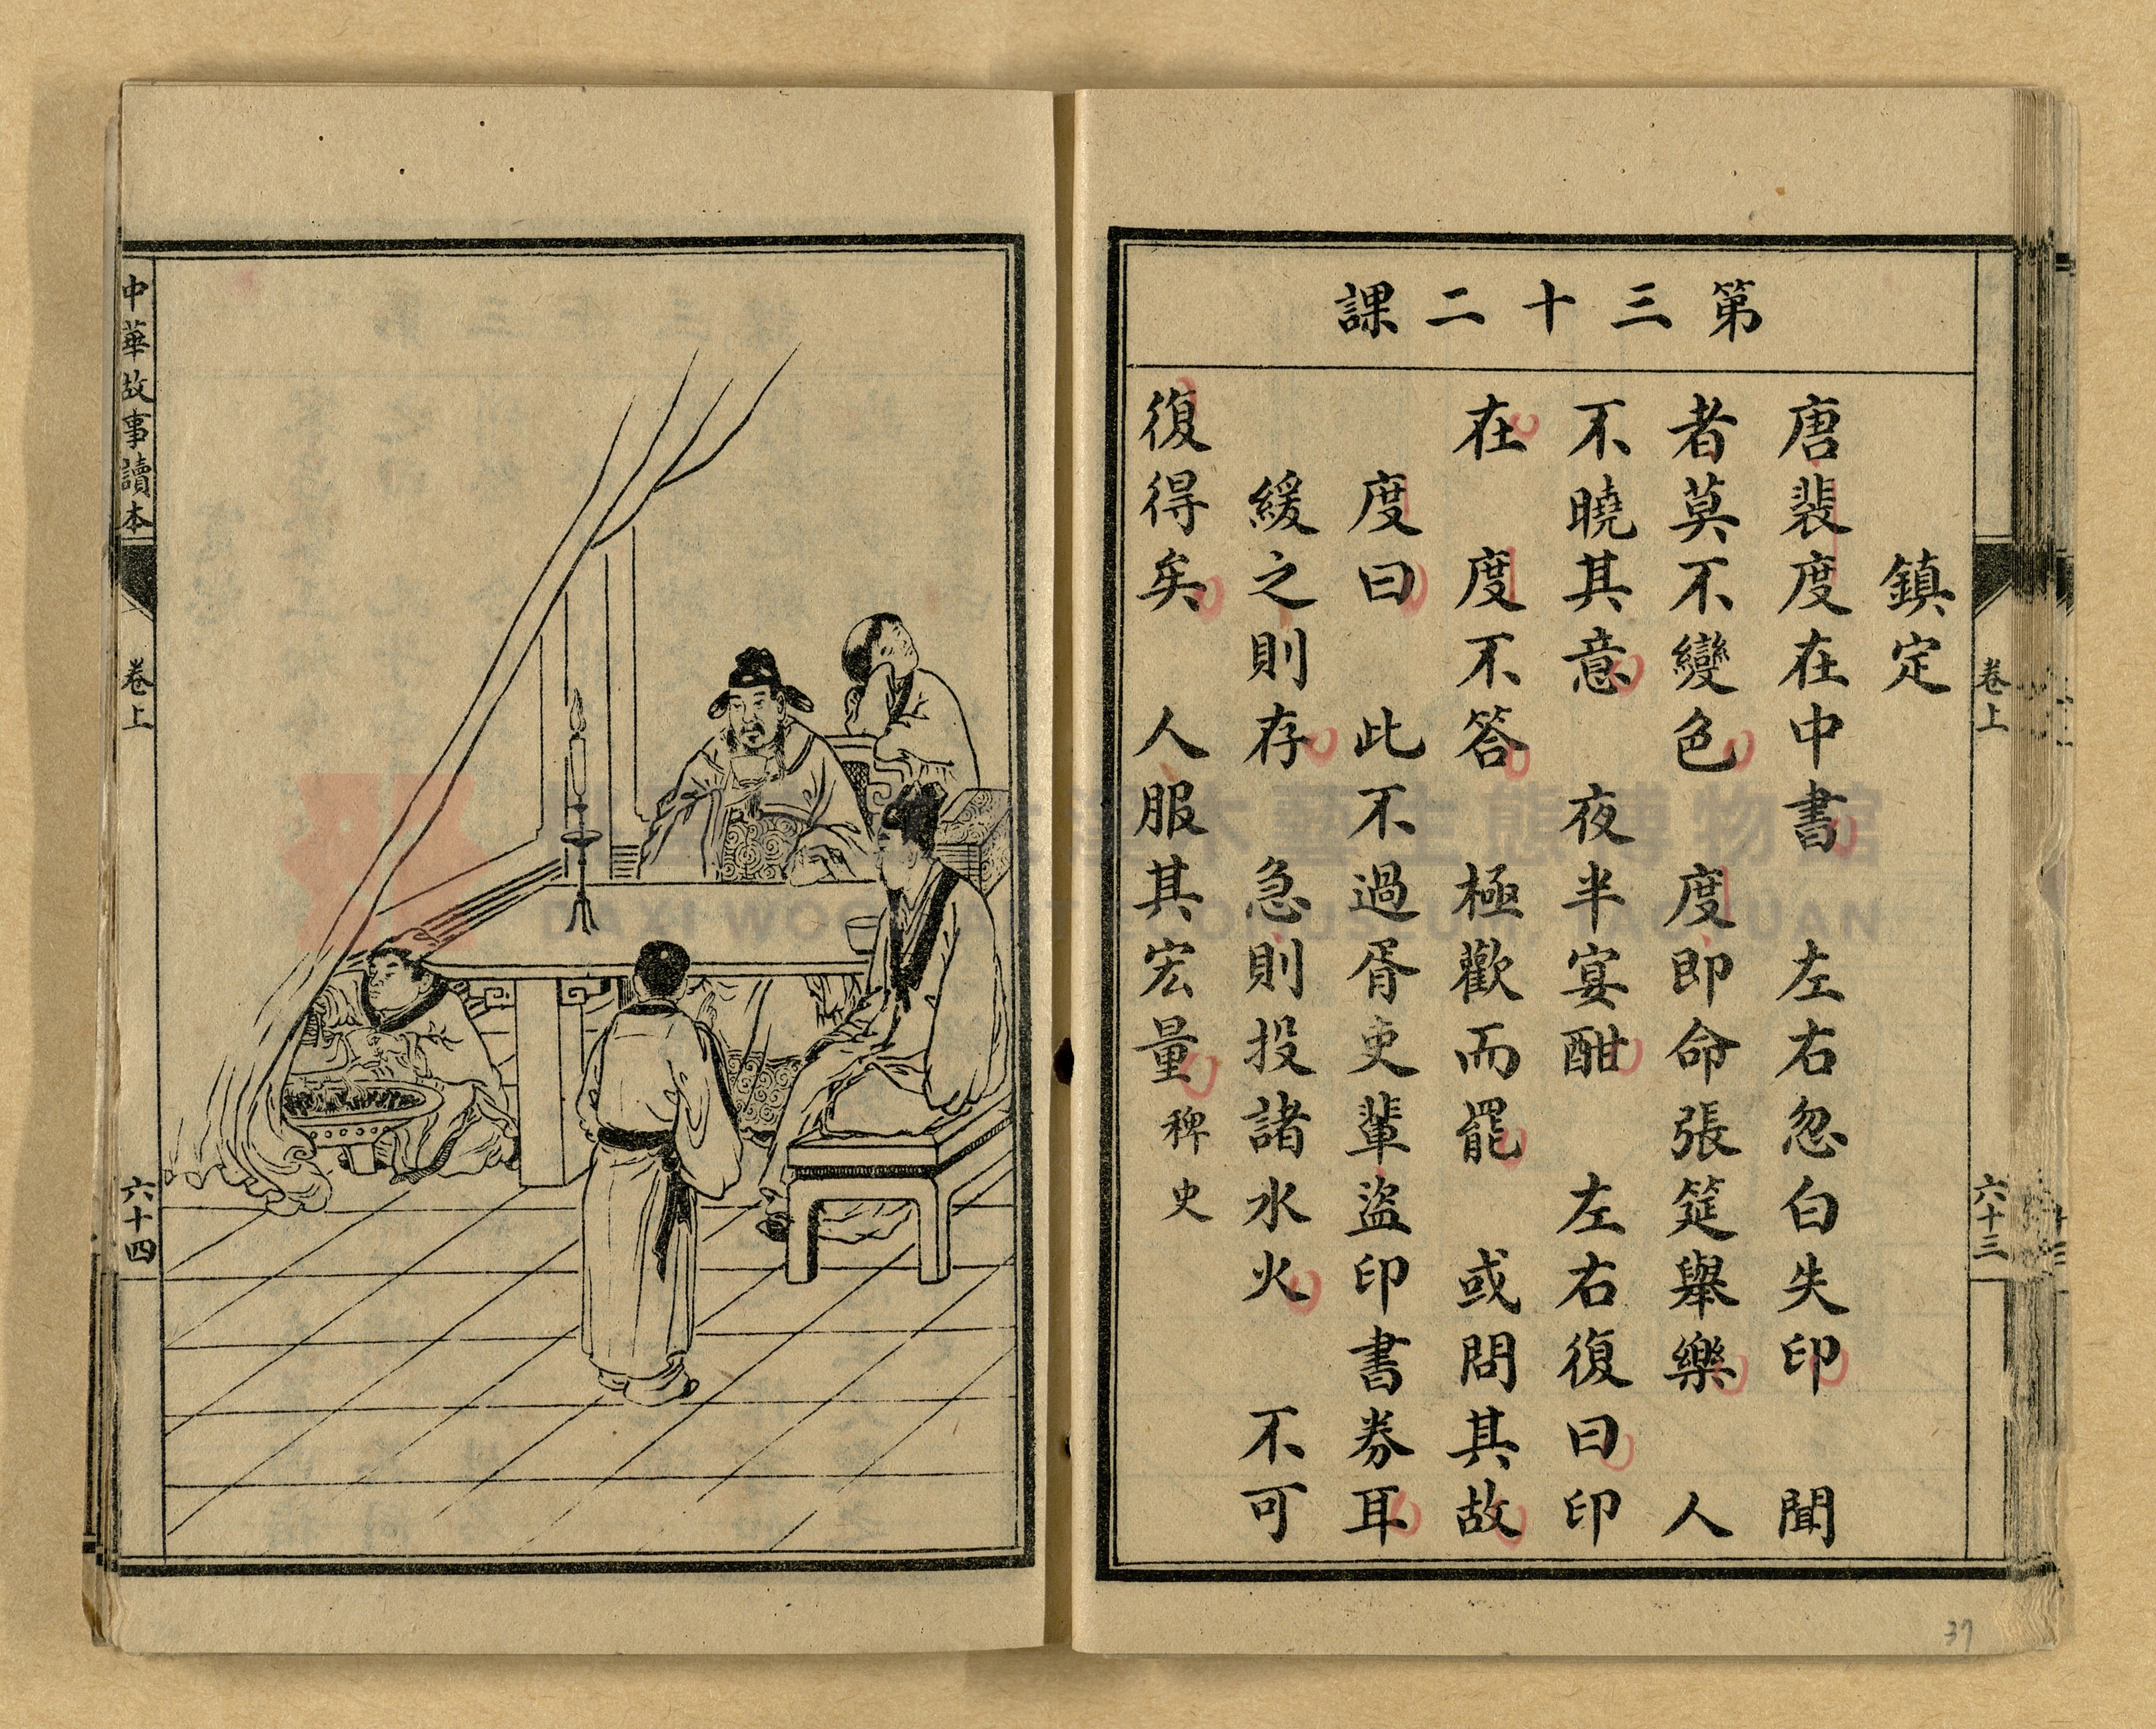 第三十二課
鎮定
唐裴度在中書　左右忽白失印　聞
者莫不變色　度即命張筵舉樂　人
不曉其意　夜半宴酣　左右復曰印
在　度不答　極歡而罷　或問其故
度曰　此不過胥吏輩盜印書券耳
緩之則存　急則投諸水火　不可
復得矣　人服其宏量　稗史
卷上
六十三
37
中華故事讀本
卷上
六十四
大溪木藝生態博物館
DAXI WOOD ART ECOMUSEUM, TAOYUAN